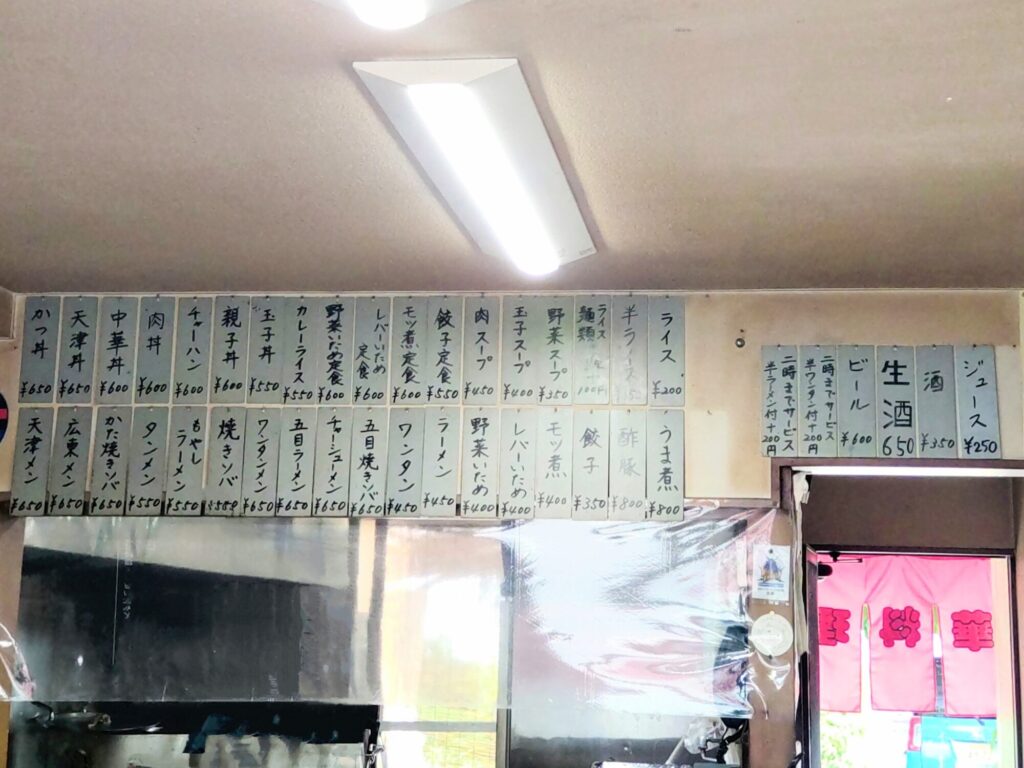 ジュース ¥250
酒 ¥350
生酒 650
ビール ¥600
二時までサービス
半ワンタン付+200円
二時までサービス
半ラーメン付+200円
ライス ¥200
半ライス
ライス
麺類
100円
野菜スープ ¥350
玉子スープ ¥400
肉スープ ¥450
餃子定食 ¥550
モツ煮定食 ¥600
レバーいため
定食 ¥600
野菜いため定食 ¥600
カレーライス ¥550
玉子丼 ¥550
親子丼 ¥600
チャーハン ¥600
肉丼 ¥600
中華丼 ¥600
天津丼 ¥650
かつ丼 ¥650
うま煮 ¥800
酢豚 ¥800
餃子 ¥350
モツ煮 ¥400
レバーいため ¥400
野菜いため ¥400
ラーメン ¥450
ワンタン ¥450
五目焼きソバ ¥650
チャーシューメン ¥650
五目ラーメン ¥650
ワンタンメン ¥650
焼きソバ ¥550
もやし
ラーメン ¥550
タンメン ¥550
かた焼きソバ ¥650
広東メン ¥650
天津メン ¥650
華